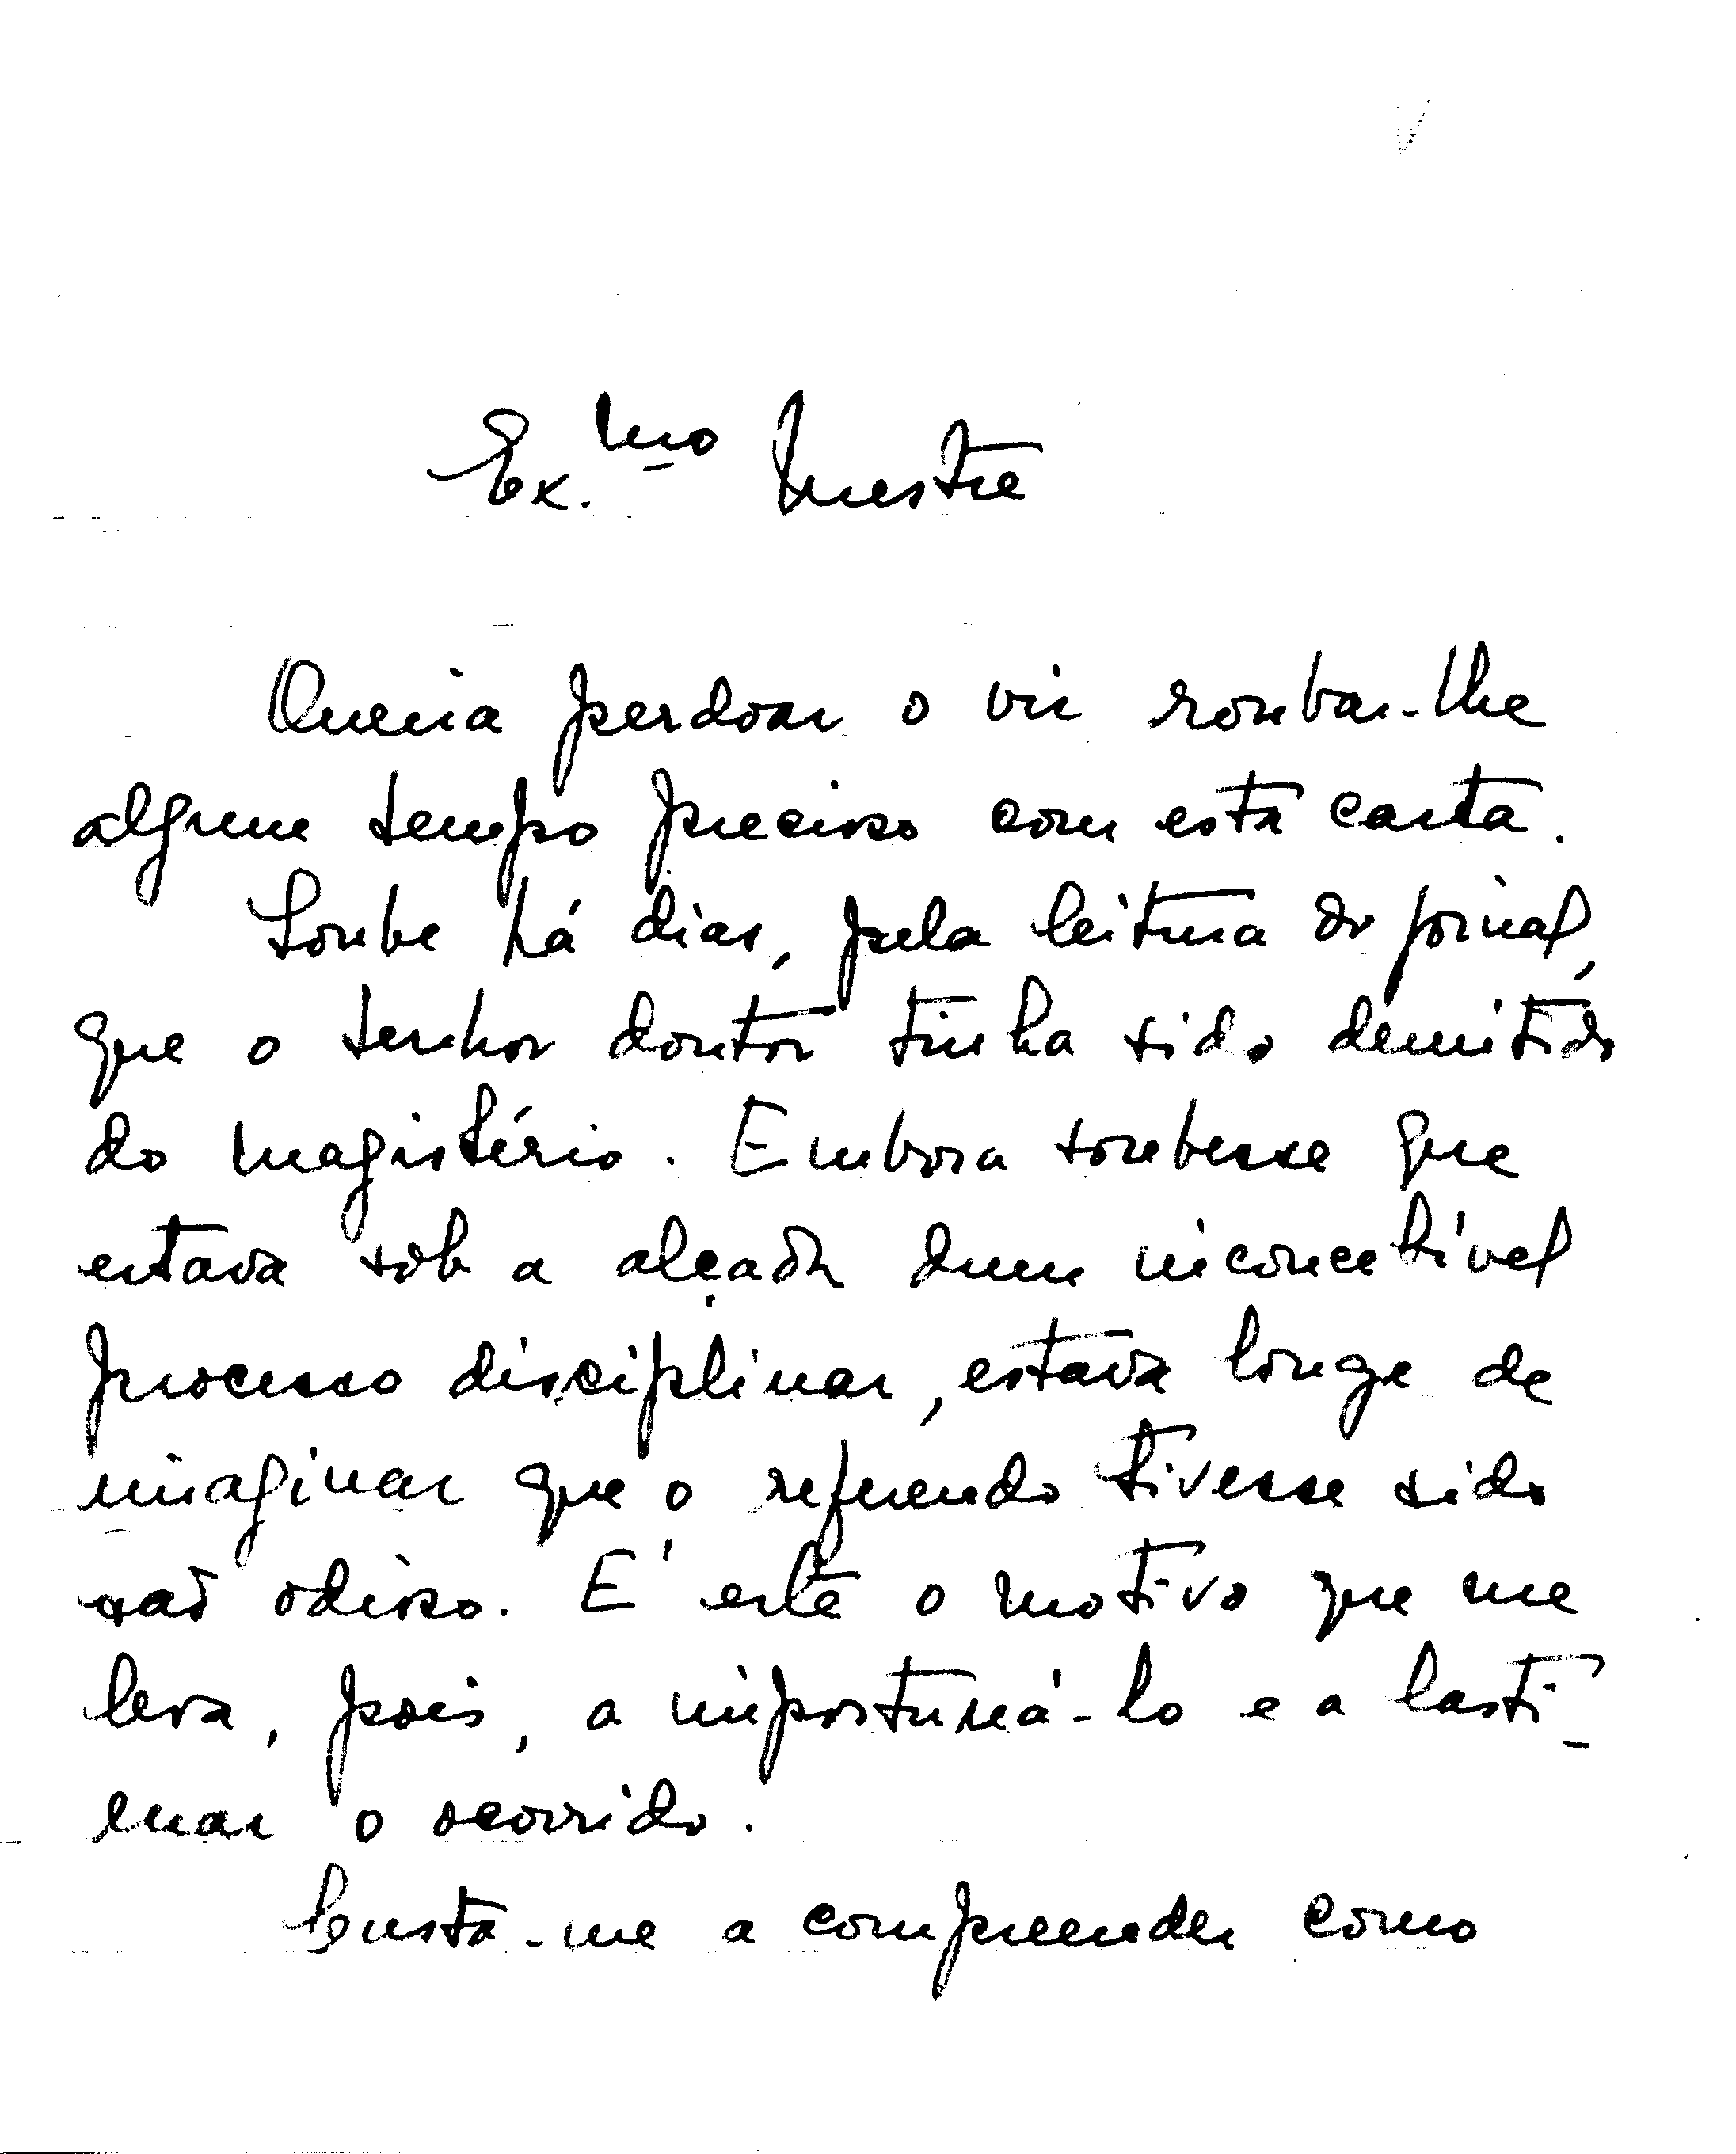 Ex.mo Mestre
Queira perdoar o vir roubar-lhe
algum tempo precioso com esta carta.
Soube há dias, pela leitura do jornal,
que o senhor doutor tinha sido demitido
do magistério. Embora soubesse que
estava sob a alçada dum inconcebível
processo disciplinar, estava longe de
imaginar que o referendo tivesse sido
tão odioso. É este o motivo que me
leva, pois, a importuná-lo e a lasti-
mar o ocorrido.
Custa-me a compreender como